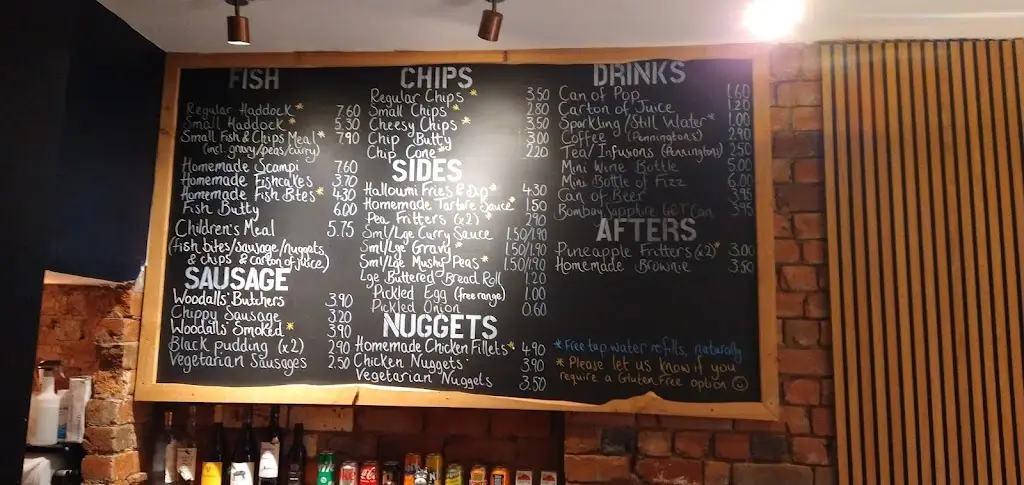 FISH
Regular Haddock* 7.60
Small Haddock* 5.30
Small Fish & Chips Meal* 7.90
(incl. gravy/peas/curry)
Homemade Scampi 7.60
Homemade Fishcakes 3.70
Homemade Fish Bites* 4.30
Fish Butty 6.00
Children's Meal 5.75
(fish bites/sausage/nuggets
& chips & carton of juice)
SAUSAGE
Woodalls' Butchers
Chippy Sausage 3.20
Woodalls' Smoked* 3.90
Black pudding (x2) 2.90
Vegetarian Sausages 2.50
3.90
CHIPS
Regular Chips* 3.50
Small Chips* 2.80
Cheesy Chips* 3.50
Chip Butty 3.00
Chip Cone* 2.20
SIDES
Halloumi Fries & Dip* 4.30
Homemade Tartare Sauce* 1.50
Pea Fritters (x2)* 2.90
Sml/Lge Curry Sauce 1.50/1.90
Sml/Lge Gravy* 1.50/1.90
Sml/Lge Mushy Peas* 1.50/1.90
Lge Buttered Bread Roll 1.20
Pickled Egg (free range) 1.00
Pickled Onion 0.60
NUGGETS
Homemade Chicken Fillets* 4.90
Chicken Nuggets 3.90
Vegetarian Nuggets 3.50
DRINKS
Can of Pop 1.60
Carton of Juice 1.20
Sparkling/Still Water* 1.00
Coffee (Penningtons) 2.90
Tea/Infusions (Penningtons) 2.50
Mini Wine Bottle 5.00
Mini Bottle of Fizz 6.00
Can of Beer 3.95
Bombay Sapphire G&T Can 3.95
AFTERS
Pineapple Fritters (x2)* 3.00
Homemade Brownie 3.50
*Free tap water refills, naturally
*Please let us know if you
require a Gluten Free option